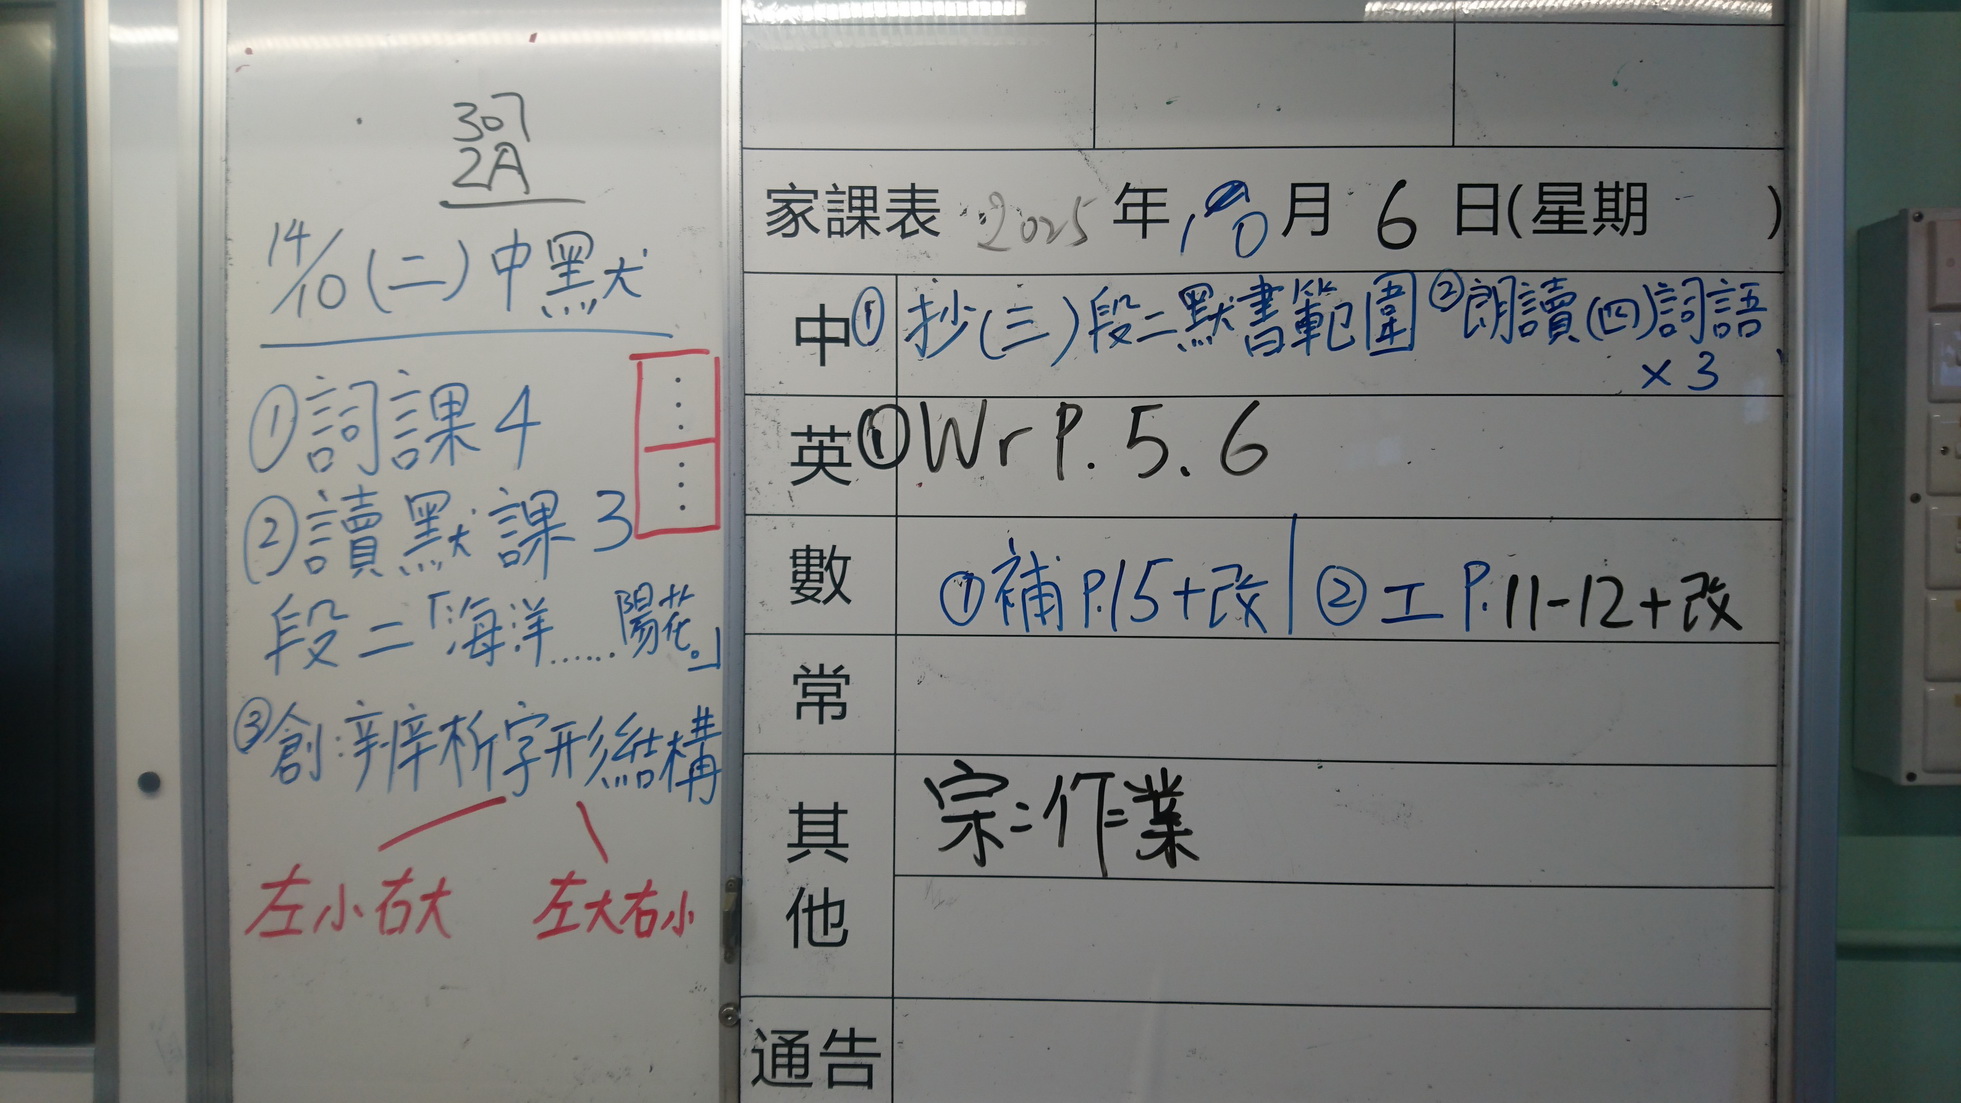 307
2A
14/10(二)中默
①詞課4
②讀默課3
段二「海洋......陽花。」
③創:辨析字形結構
左小右大 左大右小
家課表 2025 年 10 月 6 日(星期 )
中 ①抄(三)段二默書範圍 ②朗讀(四)詞語
×3
英 ①Wr P.5.6
數 ①補P.15+改 | ②工P.11-12+改
常
其他 宗:作業
通告